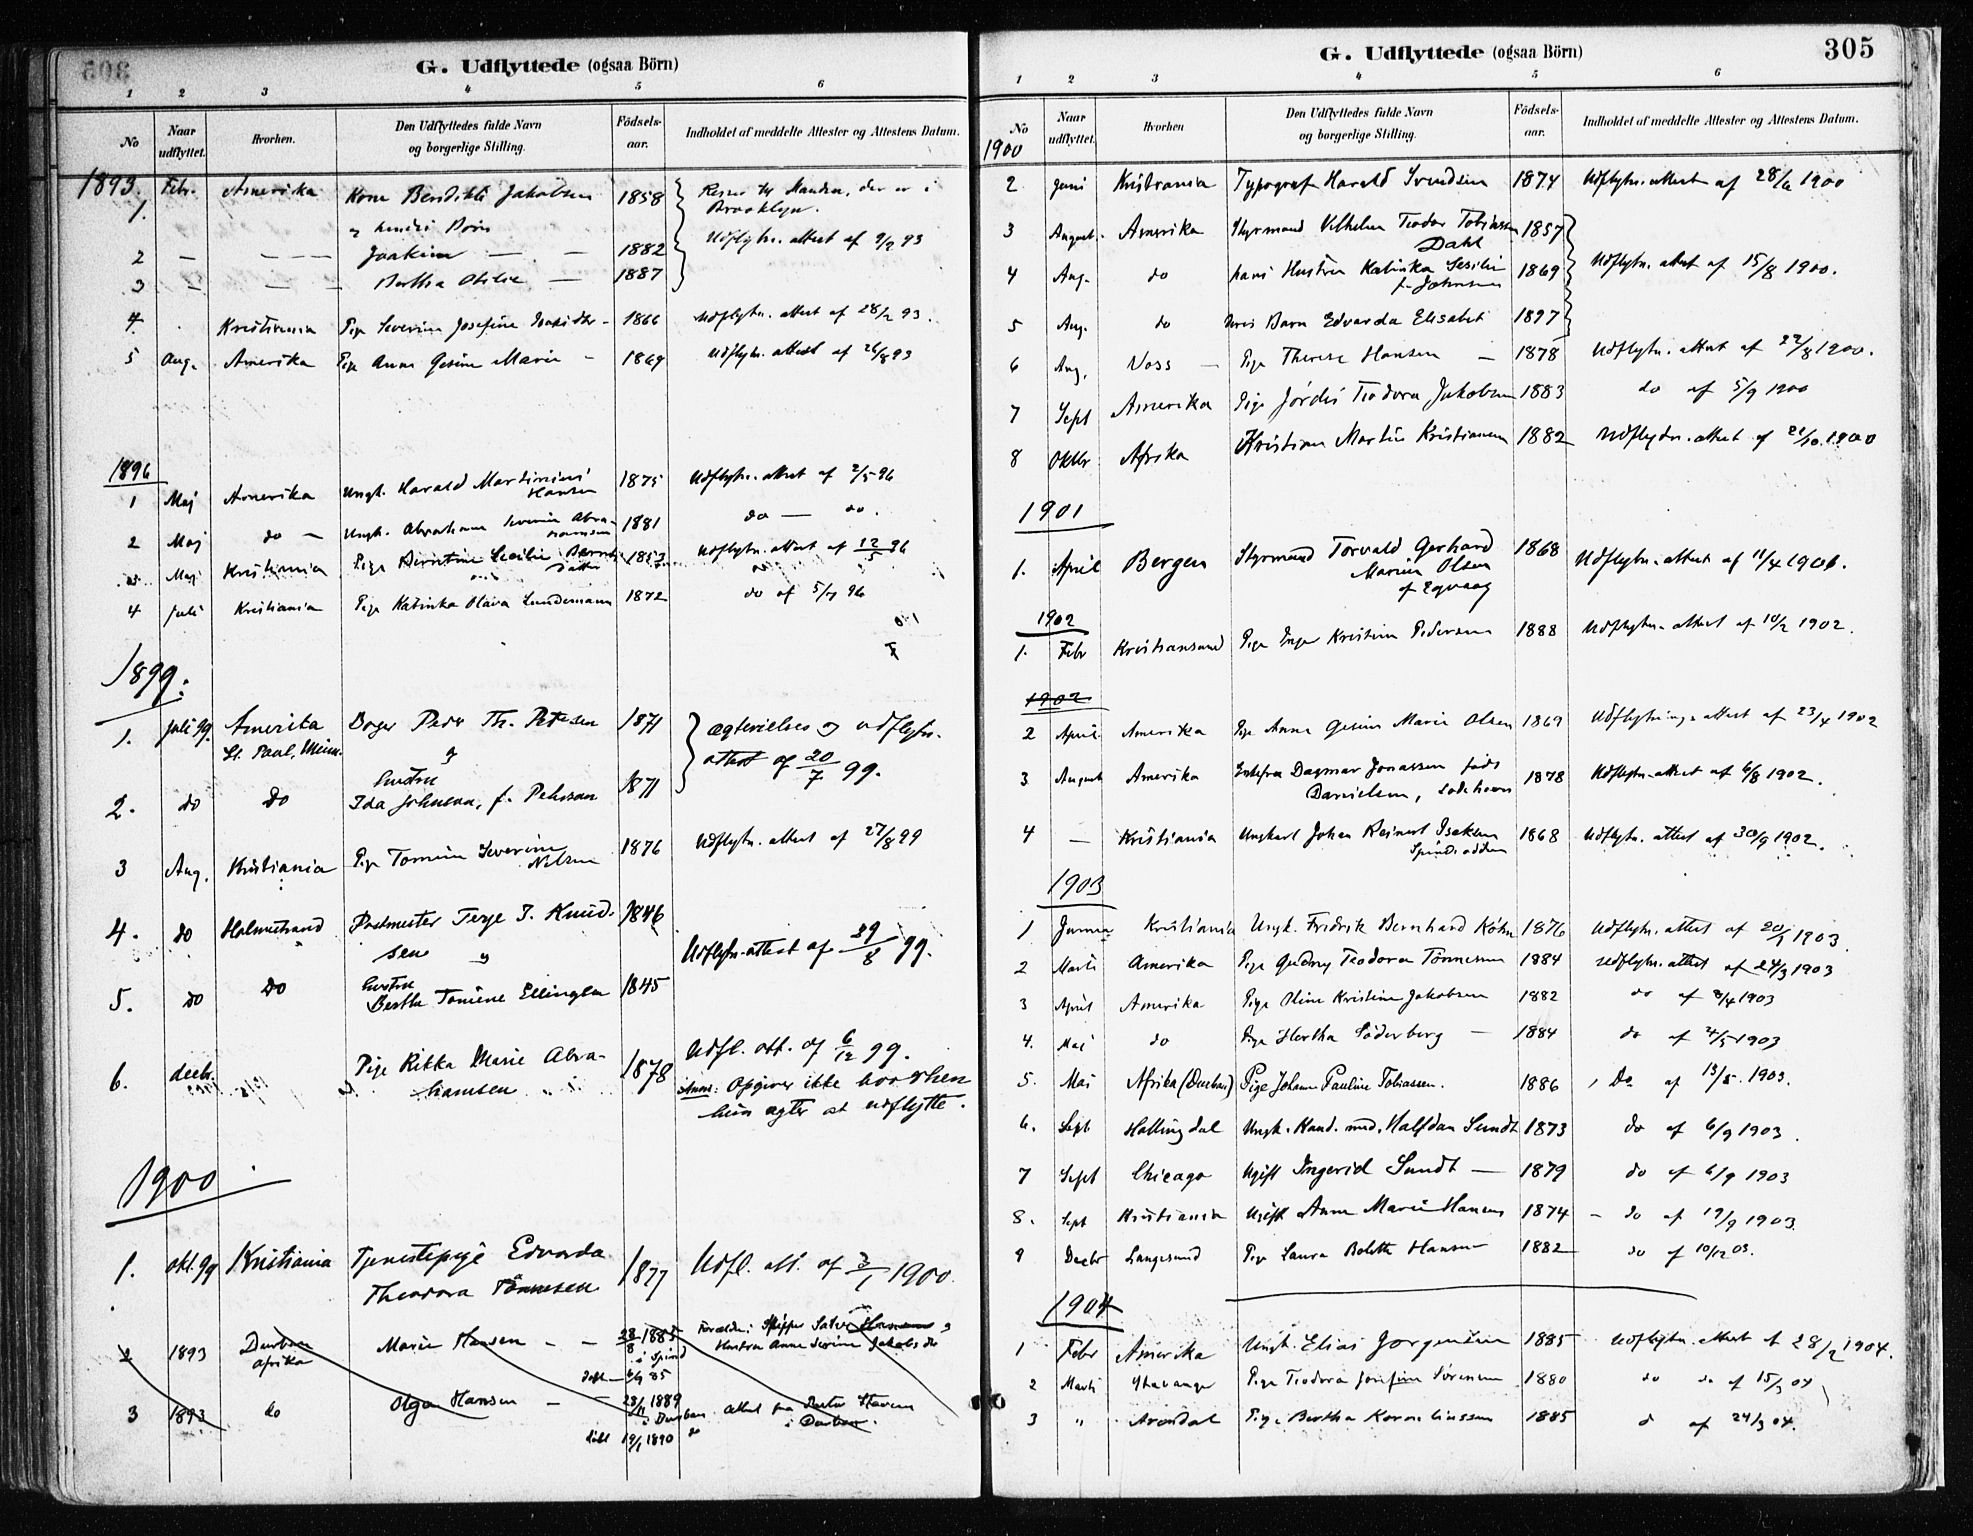 G. Udflyttede (ogsaa Börn)
1 2 3 4 5 6
No Naar udflyttet. Hvorhen. Den Udflyttedes fulde Navn og borgerlige Stilling. Födsels-aar. Indholdet af meddelte Attester og Attestens Datum.
1893. Febr. Amerika Kone Bendikte Jakobsen 1858 Reiser til Manden, der er i
1. Brooklyn.
& hendes Börn
2 — — — Joakim — — 1882 Udflytn. attest af 9/2 93
3 — — — Bertha Otilie — 1887
4. Kristiania Pige Severine Josefine 1866 Udflytn. attest af 28/2 93.
5 Aug. Amerika Pige Anne Gesine Marie – 1869 Udflytn. attest af 26/8 93
1896
1 Maj Amerika Ungk. Harald Martinius 1875 Udflytn. attest af 2/5 96
Hansen
2 Maj do — Ungk. Abraham Severin Abra- 1881 do — do.
hamsen
3 Maj Kristiania Pige Cecilie 1853 Udflytn. attest af 12/5 96
datter
4 Juli Kristiania Pige Katinka Olava Lundemann 1872 do af 5/7 96
1899.
1. Juli 99. Amerika Peder Th. Petersen 1871 ægtevielses og udflytn.
St. Paul, Minn. og attest af 20/7 99.
Hustru
2. do do Ida Johanna, f. Pehrson 1871
3 Aug. Kristiania Pige Tomine Severine 1876 Udflytn. attest af 27/8 99
Nilsen
4. do Holmestrand Postmester Terje J. Knud- 1846
sen og Udflytn. attest af 29/8 99.
Hustru
5. do do Berthe Tomine Ellingsen 1845
6. decbr. Pige Rikka Marie Abra- 1878 Udfl. att. af 6/12 99.
hamsen Anm: Opgiver ikke hvorhen
hun agter at udflytte.
1900
1. okt. 99 Kristiania Tjenestepige Edvarda 1877 Udfl. att. af 3/1 1900.
Theodora Tönnesen
2 1893 Durban Marie Hansen – – 28/8 1885 Forældre: Skipper Hansen og
Afrika i Spind Hustru Anne Serine Jakobsdtr
döbt — 6/9 85
3 1893 do Olga Hansen – 28/11 1889 Attest fra Pastor
i Durban i Durban.
döbt 19/1 1890
G. Udflyttede (ogsaa Börn) 305
1 2 3 4 5 6
No Naar udflyttet. Hvorhen Den Udflyttedes fulde Navn og borgerlige Stilling. Födsels-aar. Indholdet af meddelte Attester og Attestens Datum.
1900
2 Juni Kristiania Typograf Harald Svendsen 1874 Udflytn. attest af 28/6 1900
3 August. Amerika Styrmand Vilhelm Teodor Tobiassen 1857
Dahl
4 Aug. do hans Hustru Katinka Sesilie 1869 Udflytn. attest af 15/8 1900.
f. Johnsen
5 Aug. do deres Barn Edvarda Elisabet 1897
6 Aug. Voss — Pige Therese Hansen — 1878 Udflytn. attest af 22/8 1900.
7 Sept Amerika Pige Jördis Teodora Jakobsen 1883 do af 5/9 1900
8 Oktbr Afrika Kristian Martin Kristiansen 1882 Udflytn. attest af 21/10 1900
1901
1. April Bergen Styrmand Torvald Gerhard 1868 Udflytn. attest af 11/4 1901.
Marius Olsen
af Egvaag
1902
1. Febr Kristiansand Pige Inga Kristine Pedersen 1888 Udflytn. attest af 10/2 1902.
1902
2 April Amerika Pige Anne Gesine Marie Olsen 1869 Udflytnings attest af 23/4 1902
3 August Amerika Enkefru Dagmar Jonassen född 1878 Udflytn. attest af 6/8 1902.
Danielsen, Lodshavn
4 — Kristiania Ungkarl Johan Reinert Isaksen 1868 Udflytn. attest af 30/9 1902.
Spindsodden
1903
1 Januar Kristiania Ungk. Fredrik Bernhard Köhn 1876 Udflytn. attest af 20/1 1903.
2 Marts Amerika Pige Gudny Teodora Tönnesen 1884 Udflytn. attest af 24/3 1903
3 April Amerika Pige Oline Kristine Jakobsen 1882 do af 8/4 1903
4. Mai do Pige Hertha Söderberg — 1884 do af 4/5 1903
5. Mai Afrika (Durban) Pige Johanne Pauline Tobiassen. 1886 Do. af 13/5. 1903.
6. Sept Hallingdal Ungk. Kand. med. Halfdan Sundt 1873 do af 6/9 1903.
7 Sept Chicago Ugift Ingerid Sundt — 1879 do af 6/9 1903
8. Sept Kristiania Ugift Anne Marie Hansen 1874 – do af 19/9 1903.
9 Decbr Langesund Pige Laura Bolette Hansen 1882 do af 10/12 03.
1904
1 Febr Amerika Ungk. Elias Jörgensen 1885 Udflytn. attest af 28/2 1904.
2 Marts Stavanger Pige Teodora Josefine Sörensen 1880 do do af 15/3 04
3 " Arendal Pige Bertha Korneliussen 1885 d af 24/3 04.